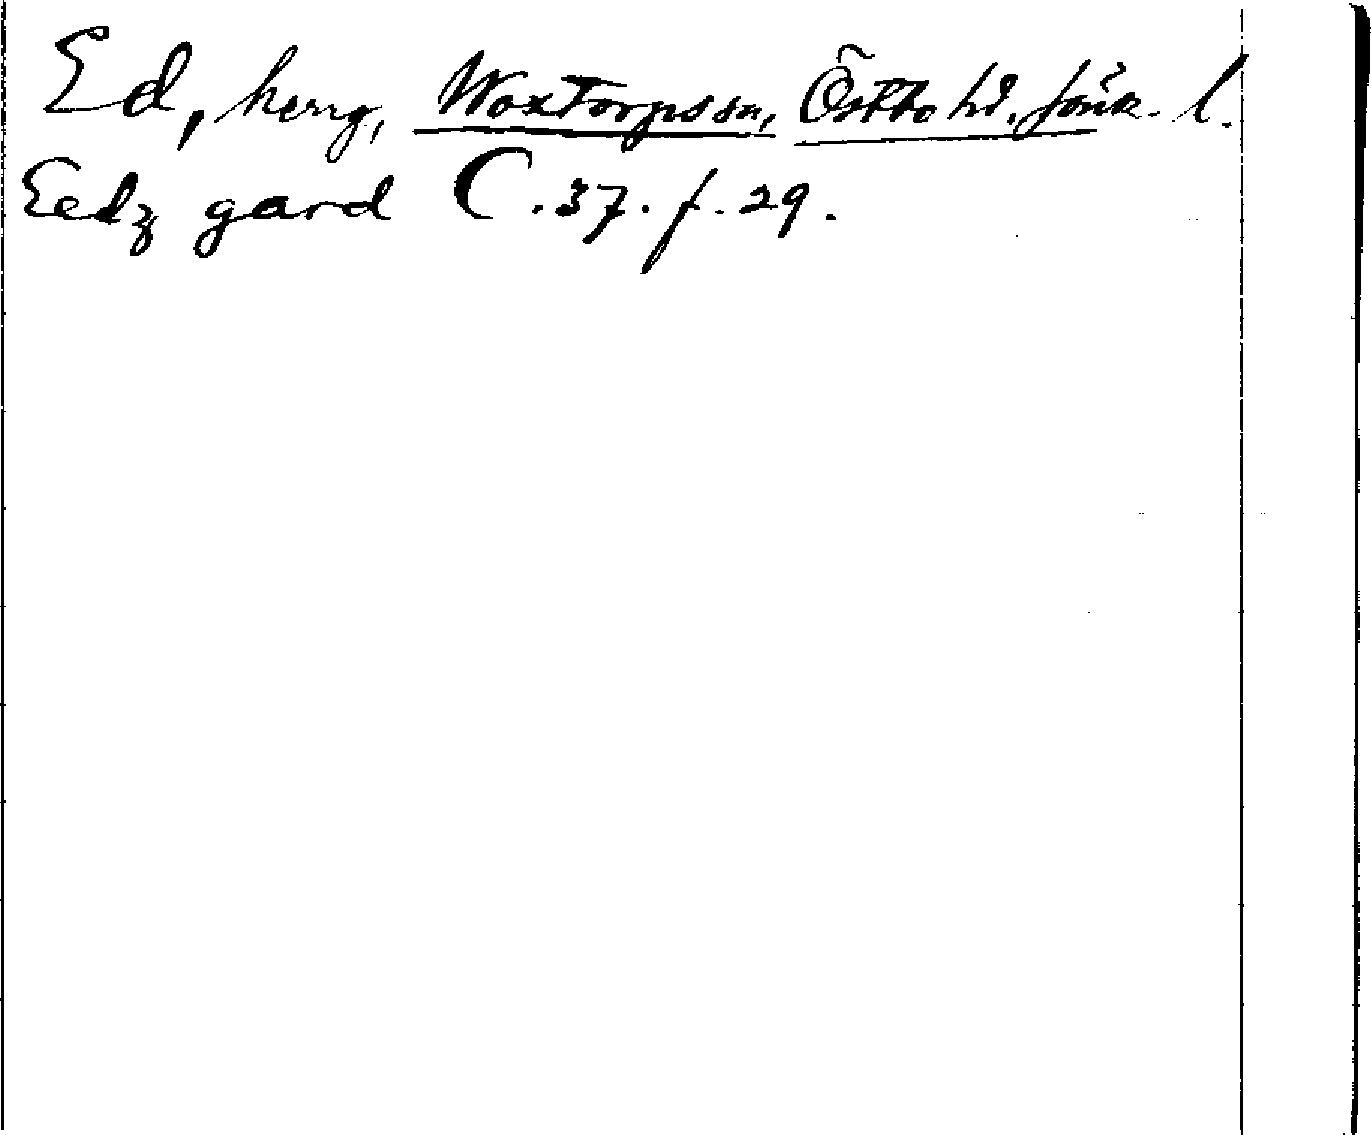 Ed, herrg, Woxtorps sn, Östbo hd. Jönk. l.
Eedz gard C. 37. f. 29.